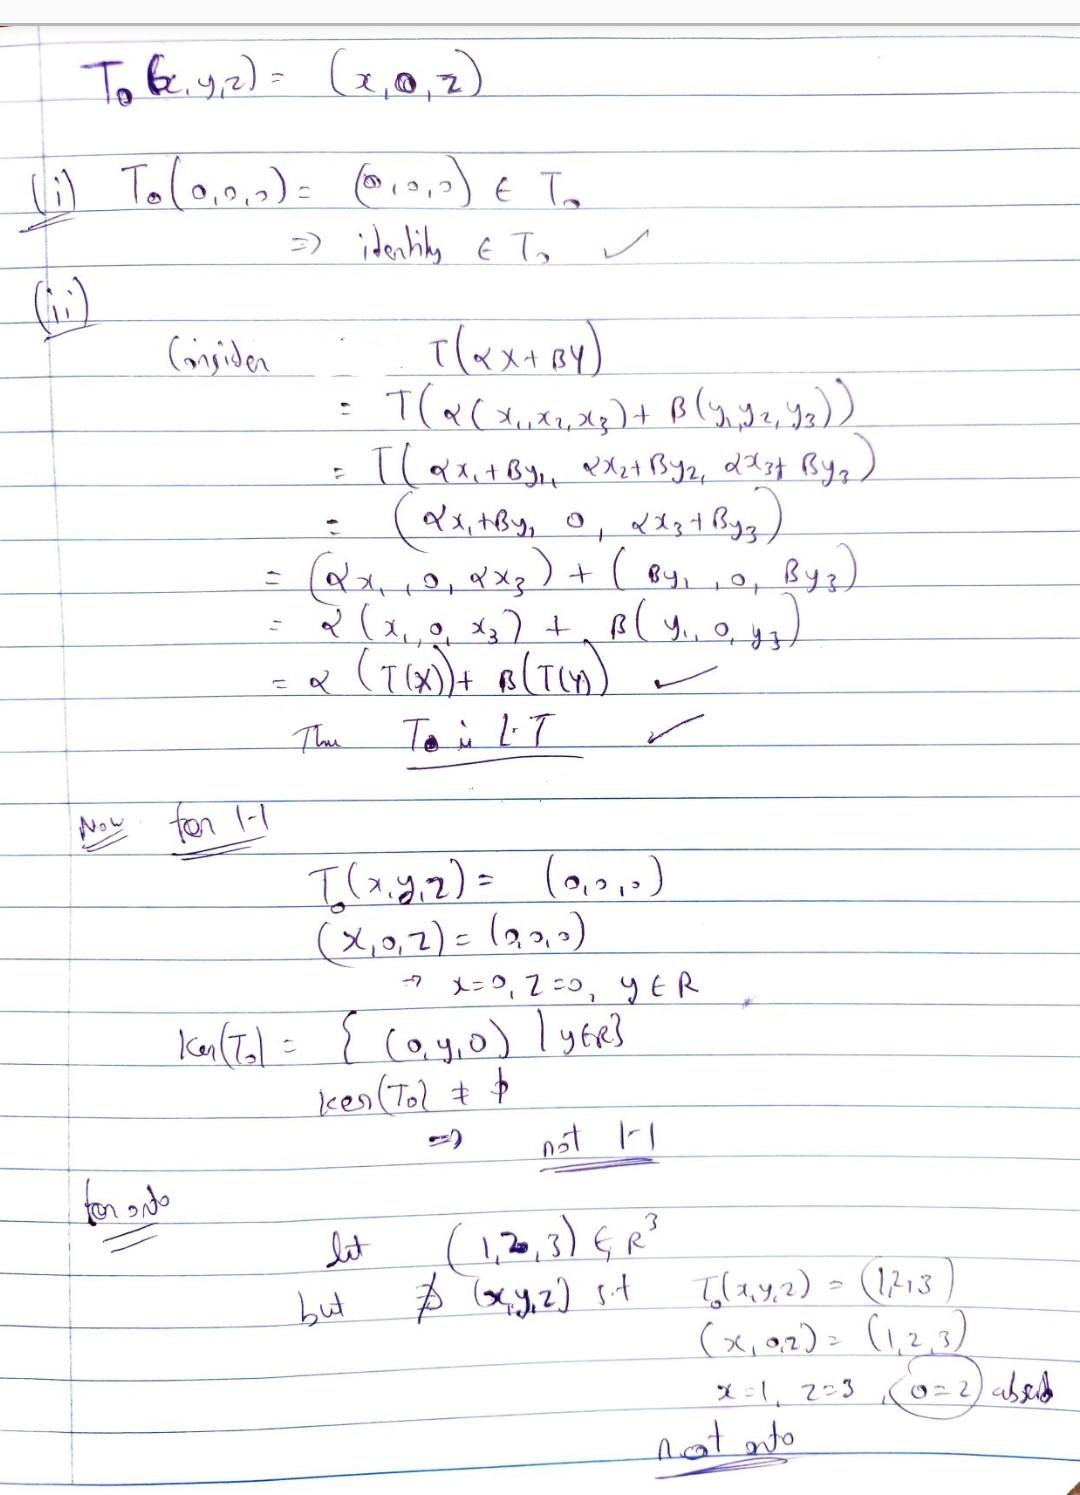 T₀(x,y,z) = (x,0,z)
(i) T₀(0,0,0) = (0,0,0) ∈ T₀
⇒ identity ∈ T₀ ✓
(ii)
Consider T(αX+βY)
= T(α(x₁,x₂,x₃)+ β(y₁,y₂,y₃))
= T(αx₁+βy₁, αx₂+βy₂, αx₃+βy₃)
= (αx₁+βy₁, 0, αx₃+βy₃)
= (αx₁,0,αx₃) + (βy₁,0,βy₃)
= α(x₁,0,x₃) + β(y₁,0,y₃)
= α(T(X))+ β(T(Y)) ✓
Thus T₀ is L.T ✓
Now for 1-1
T₀(x,y,z) = (0,0,0)
(x,0,z) = (0,0,0)
⇒ x=0, z=0, y∈R
Ker(T₀) = { (0,y,0) | y∈R}
ker(T₀) ≠ ϕ
⇒ not 1-1
for onto
let (1,2,3) ∈ R³
but ∄ (x,y,z) s.t T₀(x,y,z) = (1,2,3)
(x,0,z) = (1,2,3)
x=1, z=3, 0=2
not onto